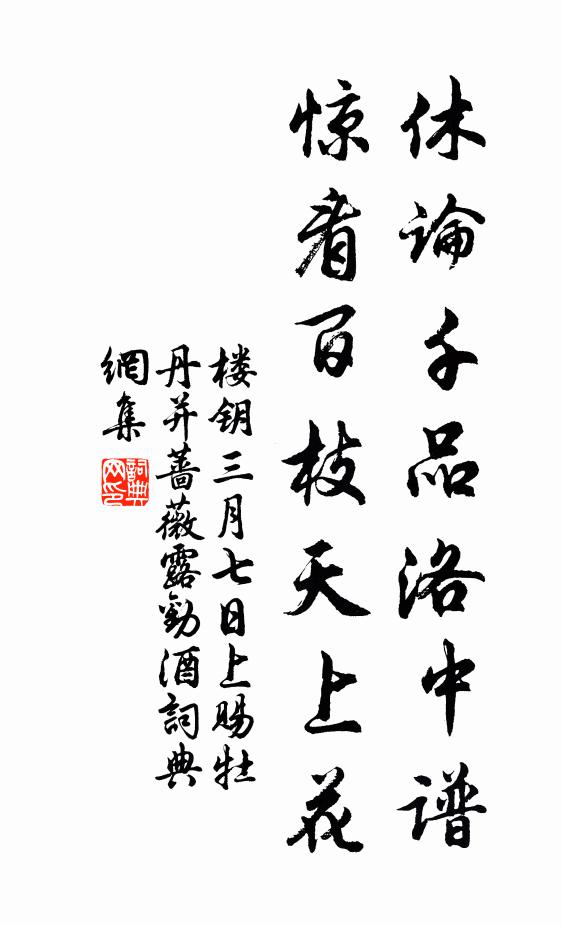 休論千品洛中谱
惊看百枝天上花
楼钥三月七日上赐牡
丹并蔷薇露劝酒詞典
網集
詞典
网印